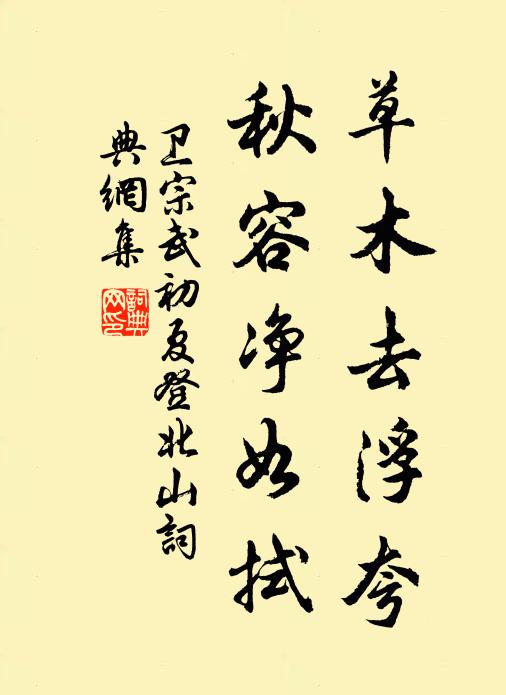 草木去浮夸
秋容净如拭
卫宗武初夏登北山詞
典網集
詞典网印